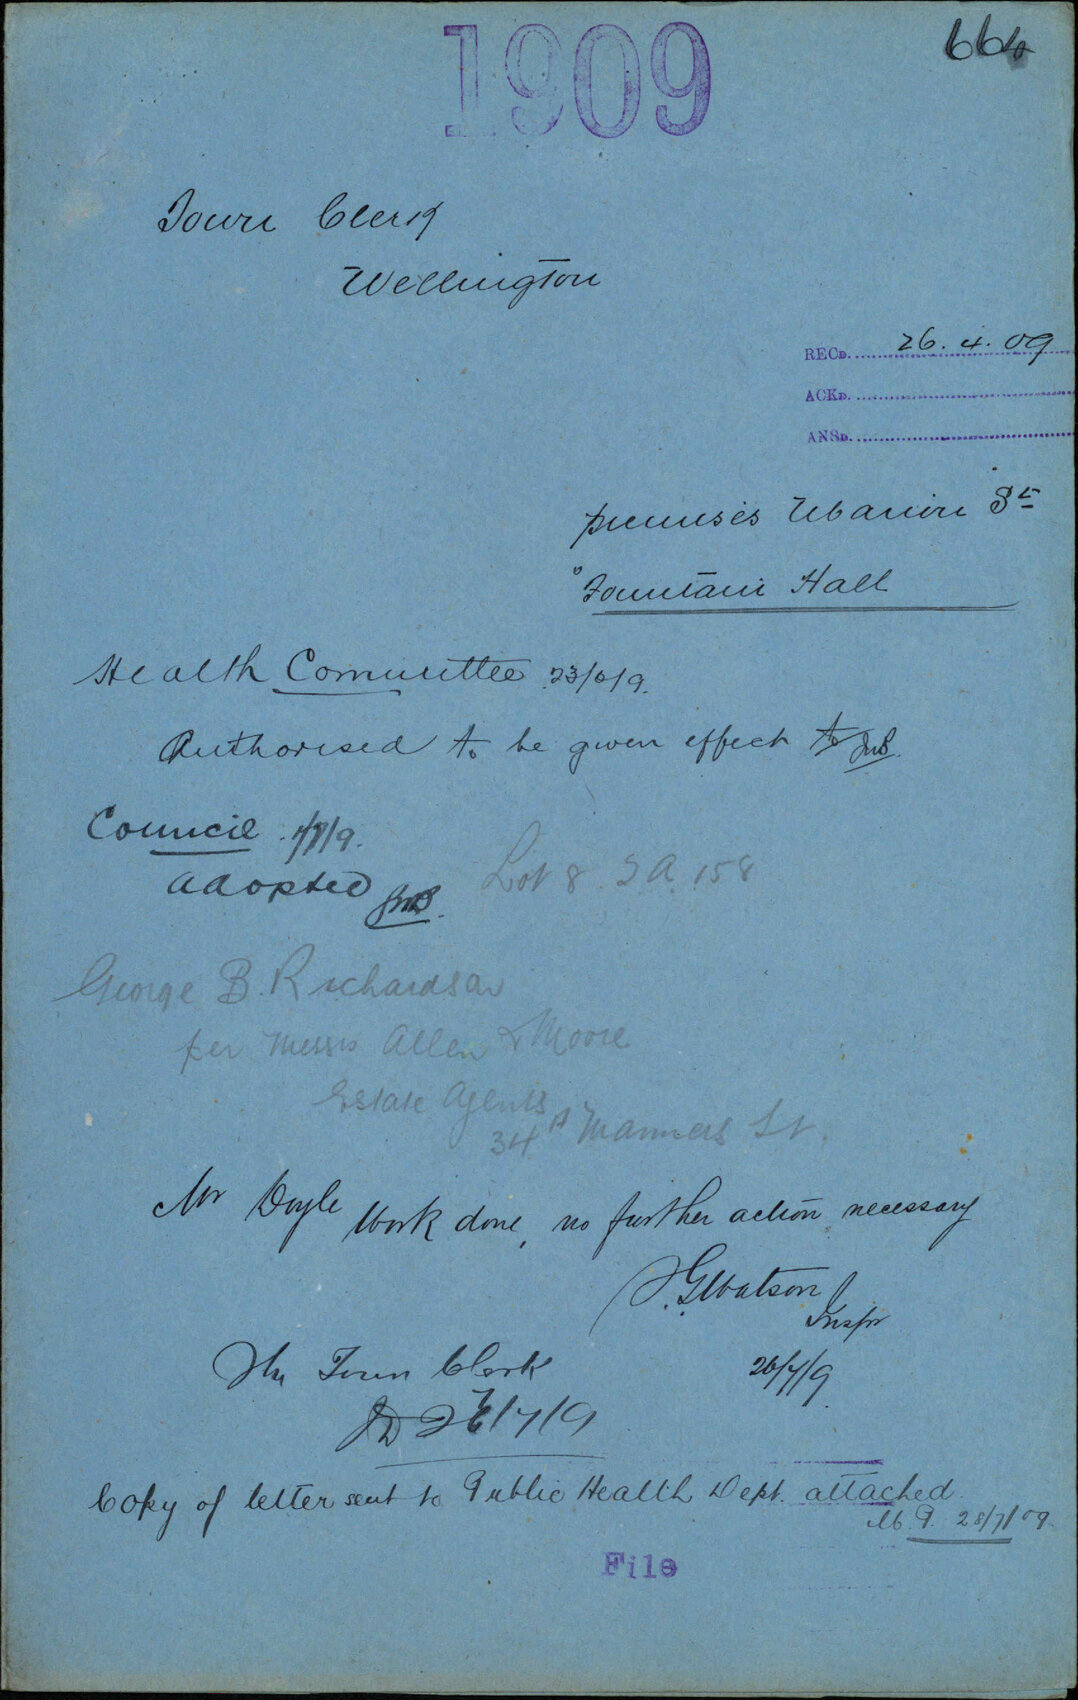 1909
664
Town Clerk
Wellington
RECD. 26.4.09
ACKD.
ANSD.
premises Marion St
"Fountain Hall
Health Committee 23/6/9.
Authorised to be given effect to JRB.
Council 1/7/9.
adopted JRB.
Lot 8. S A. 158
George B. Richardson
per Messrs Allen & Moore
Estate Agents
34A Manners St.
Mr Doyle Work done, no further action necessary
J. G. Watson
Inspr
26/7/9
The Town Clerk
JD 27/7/9
Copy of letter sent to Public Health Dept. attached.
28/7/09.
File